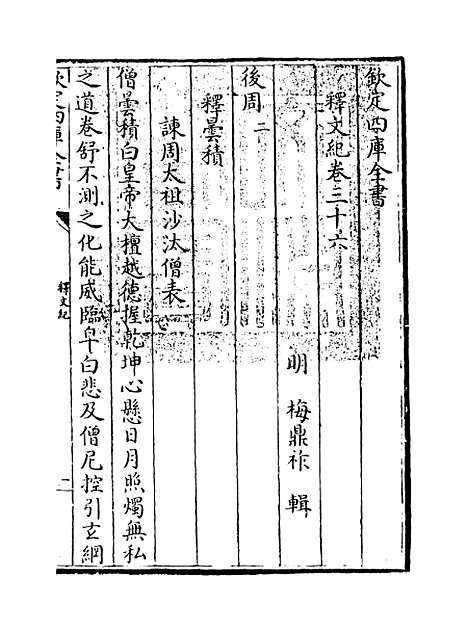 欽定四庫全書
釋文紀卷三十六
明 梅鼎祚 輯
後周二
釋曇積
諫周太祖沙汰僧表
僧曇積白皇帝大檀越德握乾坤心懸日月照燭無私
之道卷舒不測之化能威臨皁白悲及僧尼控引玄綱
欽定四庫全書
釋文紀